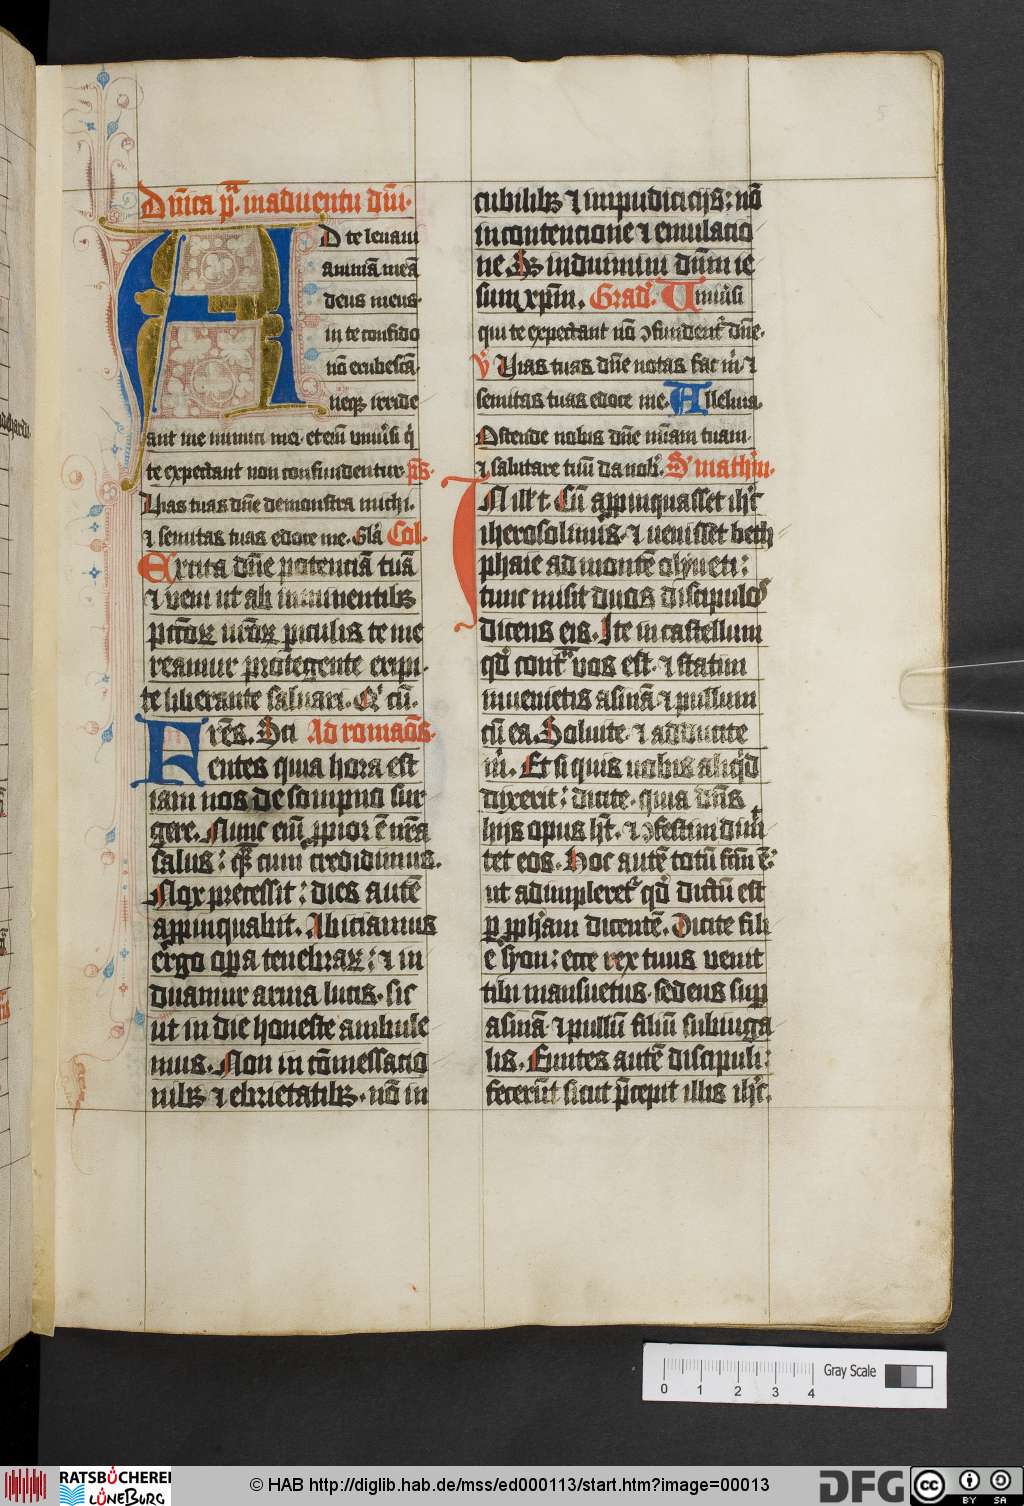 Dn̄ica pͣ. in aduentu dn̄i.
AD te leuaui
animā meā
deus meus.
in te confido
nō erubescā.
neqꝫ irride
ant me inimici mei. et eiū vniu̾si q̇
te expectant non confundentur. pˢ.
Uias tuas dn̄e demonstra michi.
⁊ semitas tuas edoce me. Glā Col.
Excita dn̄e potenciā tuā
⁊ veni ut ab iminentibꝫ
pctōꝝ nr̄oꝝ piculis te me
reamur protegente eripi.
te liberante saluari. Qͥ cū.
Frēs. Sci Ad romaōs.
entes quia hora est
iam nos de sompno sur
gere. Nunc eiū ꝓpior ē nr̄a
salus: qͣ cum credidimus.
Nox precessit: dies autē
appinquabit. Abiciamus
ergo opa tenebraꝝ: ⁊ in
duamur arma lucis. sic
ut in die honeste ambule
mus. Non in cōmessacio
nibꝫ ⁊ ebrietatibꝫ. nō in
cubilibꝫ ⁊ impudicicijs: nō
in contencione ⁊ emulacio
ne. Sꝫ induimini dn̄m ie
sum xp̄m. Grad'. Uniu̾si
qui te expectant nō ↄfundentͬ dn̄e.
v̾ Uias tuas dn̄e notas fac m̍ ⁊
semitas tuas edoce me. Alleluia.
Ostende nobis dn̄e mīam tuam.
⁊ salutare tuū da nob̾. S' mathm̄.
IN ill' t. Cū appinquasset ih̾c
iherosolimis. ⁊ uenisset beth
phaie ad montē olyueti:
tunc misit duos discipulos
dicens eis. Ite in castellum
qd̾ contͣ vos est. ⁊ statim
inuenietis asinā ⁊ pullum
cū ea. Soluite. ⁊ adducite
m̍. Et si quis uobis aliqͥd
dixerit: dicite. quia dn̄s
hijs opus h̄t. ⁊ ↄfestim dimi
tet eos. Hoc autē totū fcm̄ ē:
ut adimpleretͬ qd̾ dictū est
ꝑ ꝓph̄am dicentē. Dicite fili
e syon: ecce rex tuus uenit
tibi mansuetus. sedens sup
asinā ⁊ pullū filiū subiuga
lis. Euntes autē discipuli:
fecerūt sicut p̄cepit illis ih̾c.
5
0 1 2 3 4
Gray Scale
RATSBÜCHEREI
LÜNEBURG
© HAB http://diglib.hab.de/mss/ed000113/start.htm?image=00013
DFG
cc
BY SA